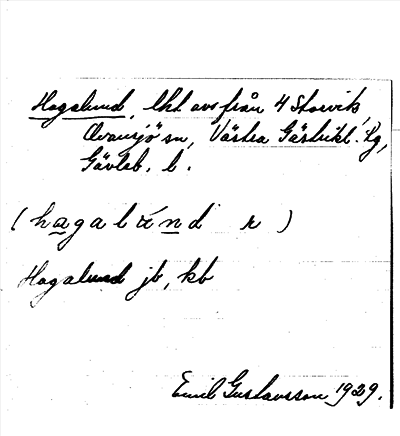 Hagalund, lht avs från 4 Storvik,
Ovansjö sn, Västra Gästrikl. tg,
Gävleb. l.
(hagalu̇nd r)
Hagalund jb, kb
Emil Gustavsson 1929.